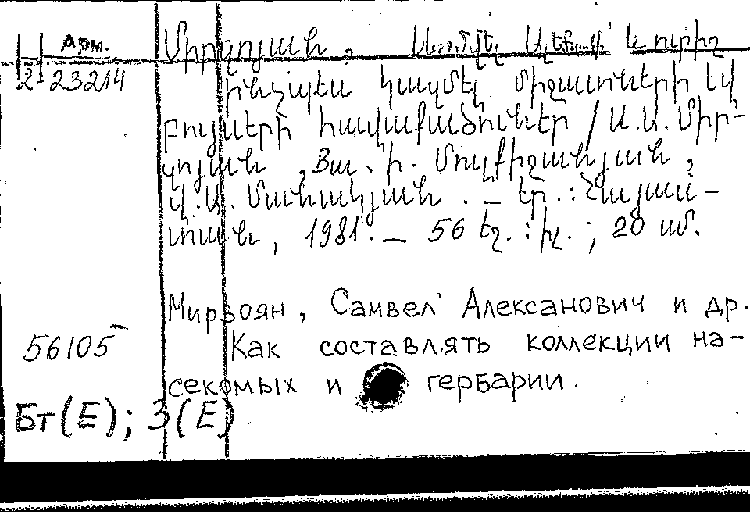 Арм.
2-23214
Միրզոյան, Սամվել և ուրիշ
Ինչպես կազմել միջատների և
բույսերի հավաքածուներ / Ս.Ա. Միր-
զոյան, Յա. Ի. Մուլքիջանյան,
Վ.Ա. Մանակյան. — Եր.: Հայաս-
տան, 1981. — 56 էջ. : իլ. ; 20 սմ.
Мирзоян, Самвел Александрович и др.
56105
Как составлять коллекции на-
секомых и гербарии.
Бт(Е); З(Е)